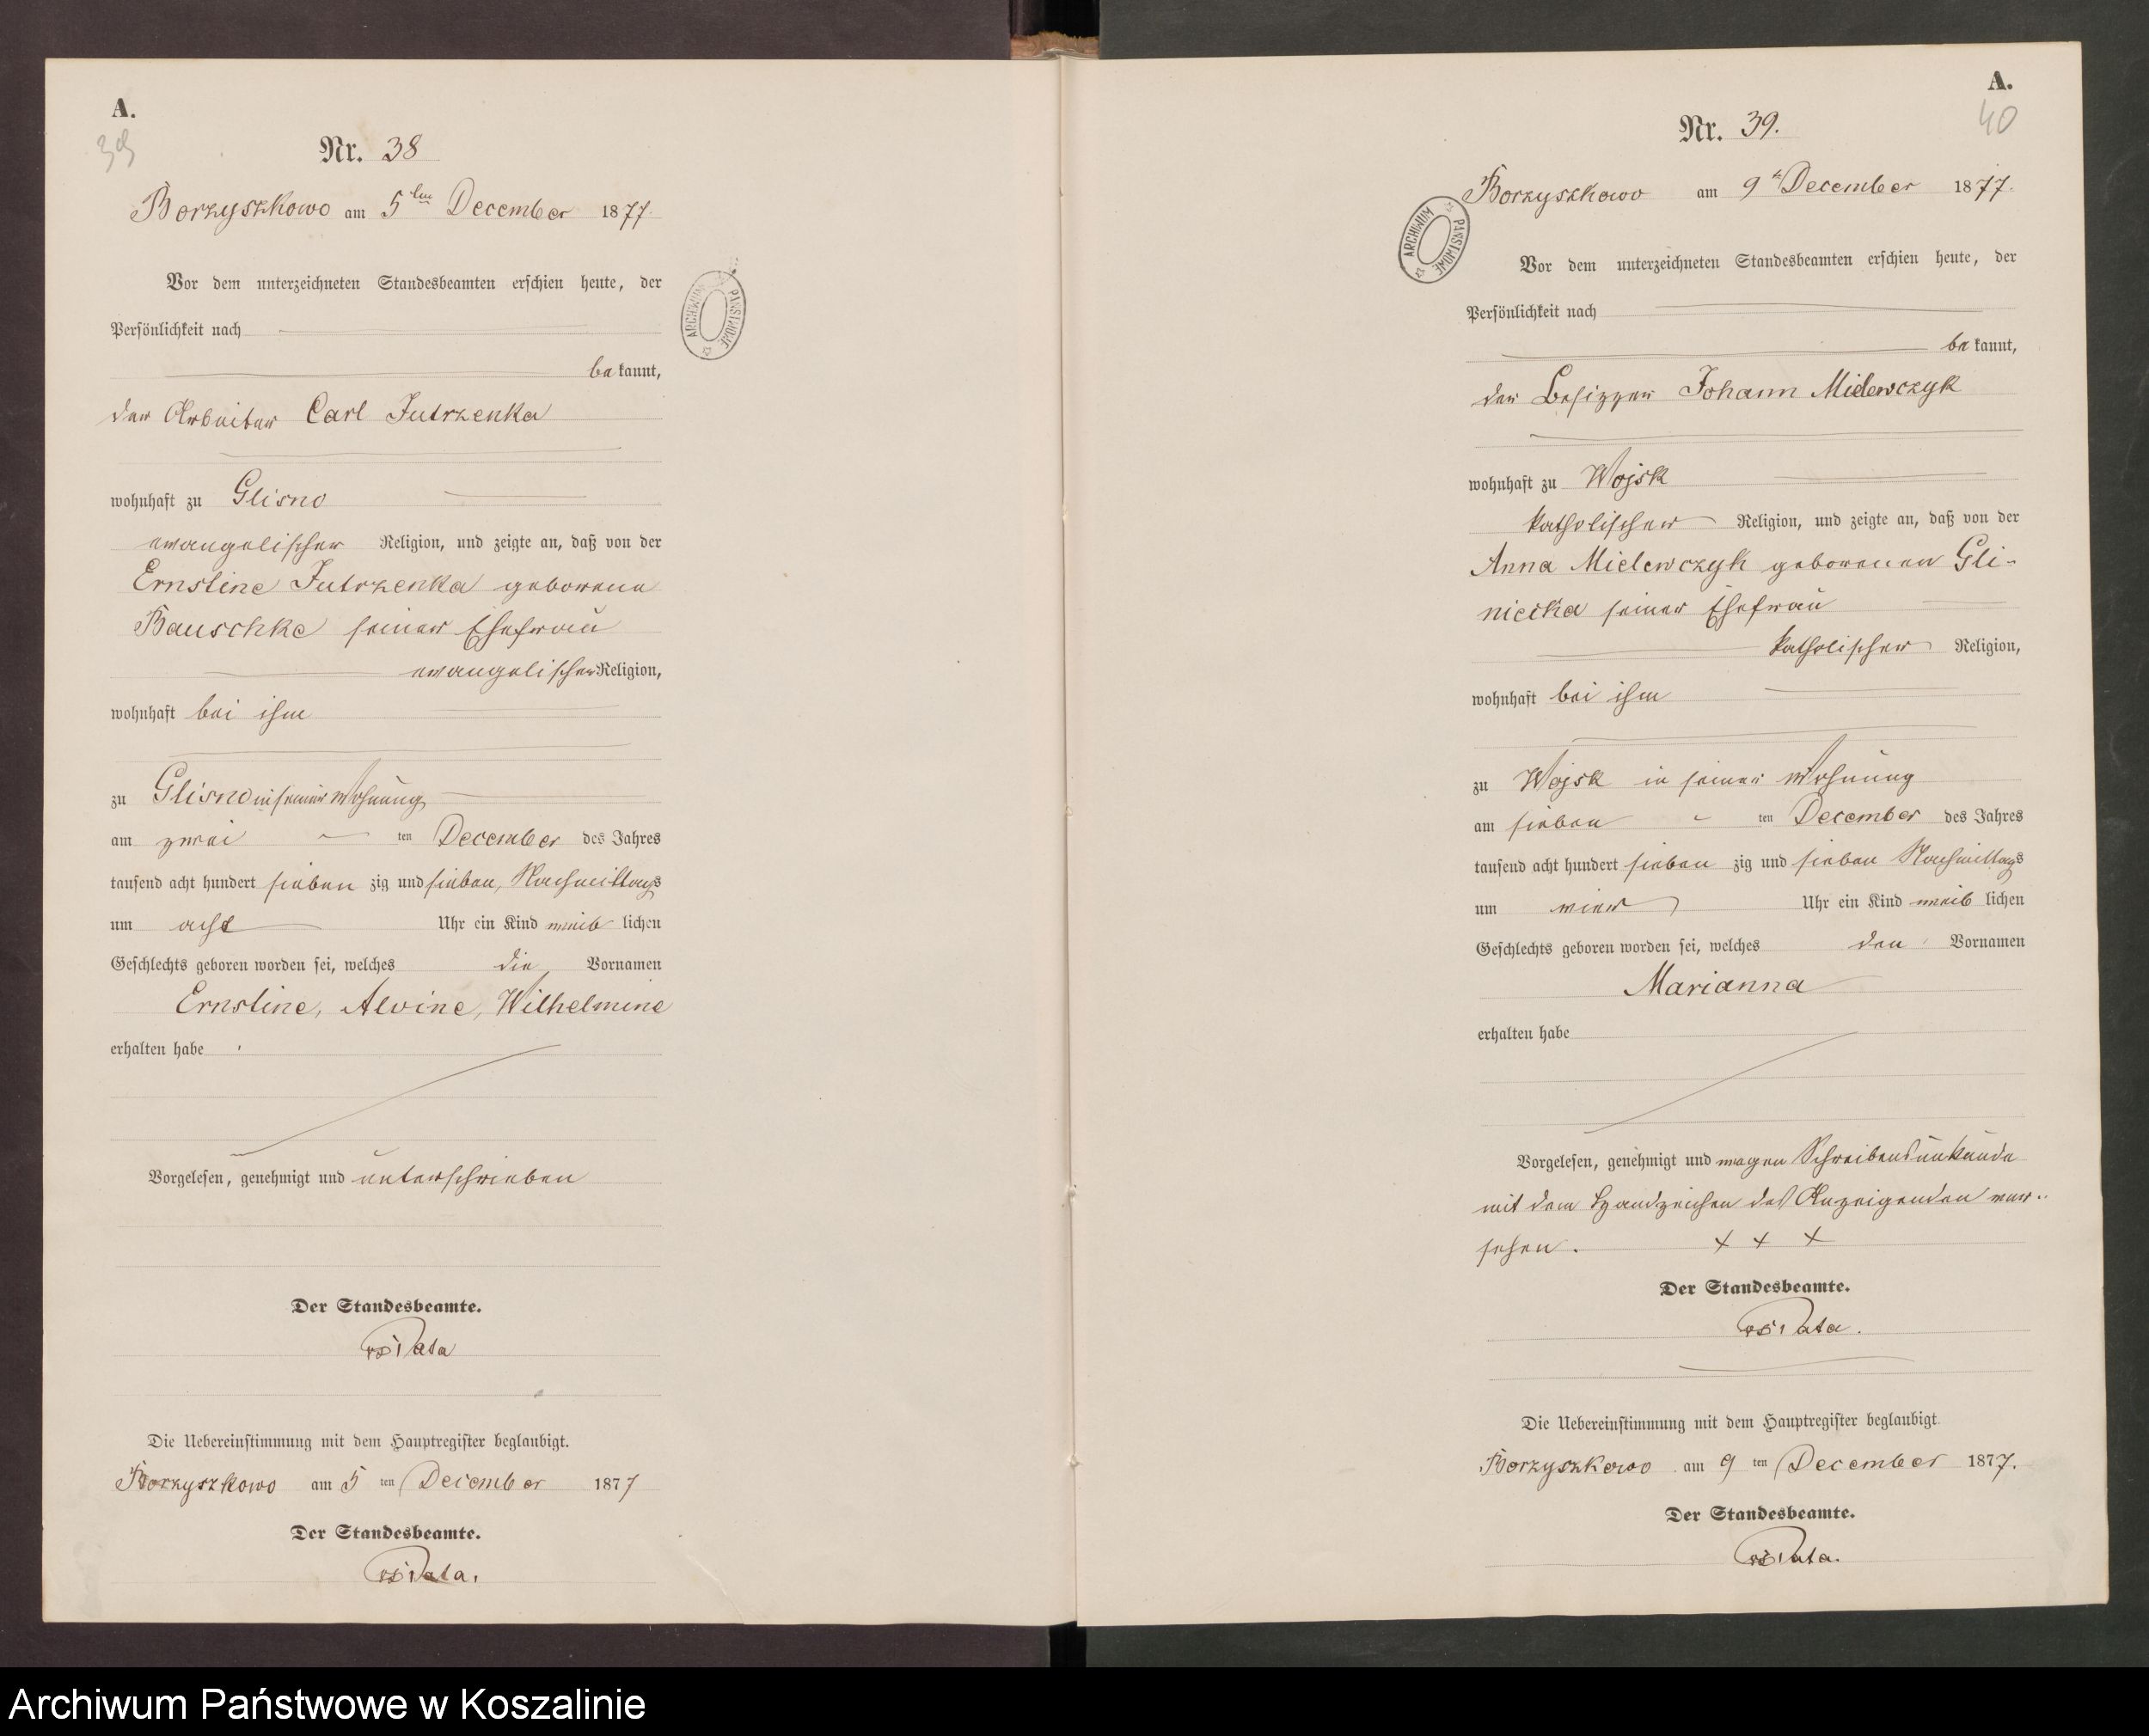 A.
39
Nr. 38
Borzyszkowo am 5ten December 1877.
Vor dem unterzeichneten Standesbeamten erschien heute, der
Persönlichkeit nach
be kannt,
der Arbeiter Carl Jutrzenka
wohnhaft zu Glisno
evangelischer Religion, und zeigte an, daß von der
Ernstine Jutrzenka geborene
Bauschke seiner Ehefrau
evangelischer Religion,
wohnhaft bei ihm
zu Glisno in seiner Wohnung
am zwei ten December des Jahres
tausend acht hundert sieben zig und sieben, Nachmittags
um acht Uhr ein Kind weib lichen
Geschlechts geboren worden sei, welches die Vornamen
Ernstine, Alvine, Wilhelmine
erhalten habe
Vorgelesen, genehmigt und unterschrieben
Der Standesbeamte.
Die Uebereinstimmung mit dem Hauptregister beglaubigt.
Borzyszkowo am 5 ten December 1877
Der Standesbeamte.
ARCHIWUM PAŃSTWOWE
A.
40
Nr. 39.
Borzyszkowo am 9t December 1877.
Vor dem unterzeichneten Standesbeamten erschien heute, der
Persönlichkeit nach
be kannt,
der Besitzer Johann Mielewczyk
wohnhaft zu Wojsk
katholischer Religion, und zeigte an, daß von der
Anna Mielewczyk geborenen Gli-
niecka seiner Ehefrau
katholischer Religion,
wohnhaft bei ihm
zu Wojsk in seiner Wohnung
am sieben ten December des Jahres
tausend acht hundert sieben zig und sieben Nachmittags
um vier Uhr ein Kind weib lichen
Geschlechts geboren worden sei, welches den Vornamen
Marianna
erhalten habe
Vorgelesen, genehmigt und wegen Schreibensunkunde
mit dem Handzeichen des Anzeigenden ver-
sehen. + + +
Der Standesbeamte.
Die Uebereinstimmung mit dem Hauptregister beglaubigt.
Borzyszkowo am 9 ten December 1877.
Der Standesbeamte.
ARCHIWUM PAŃSTWOWE
Archiwum Państwowe w Koszalinie